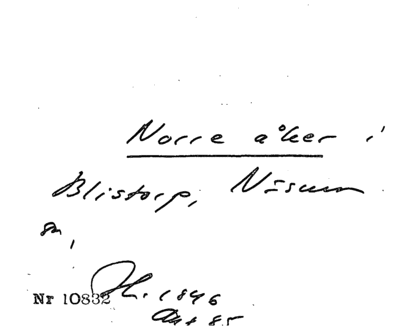 Norre åker i
Blistorp, Näsum
sn,
Nr 10832 H. 1846
Akt 85